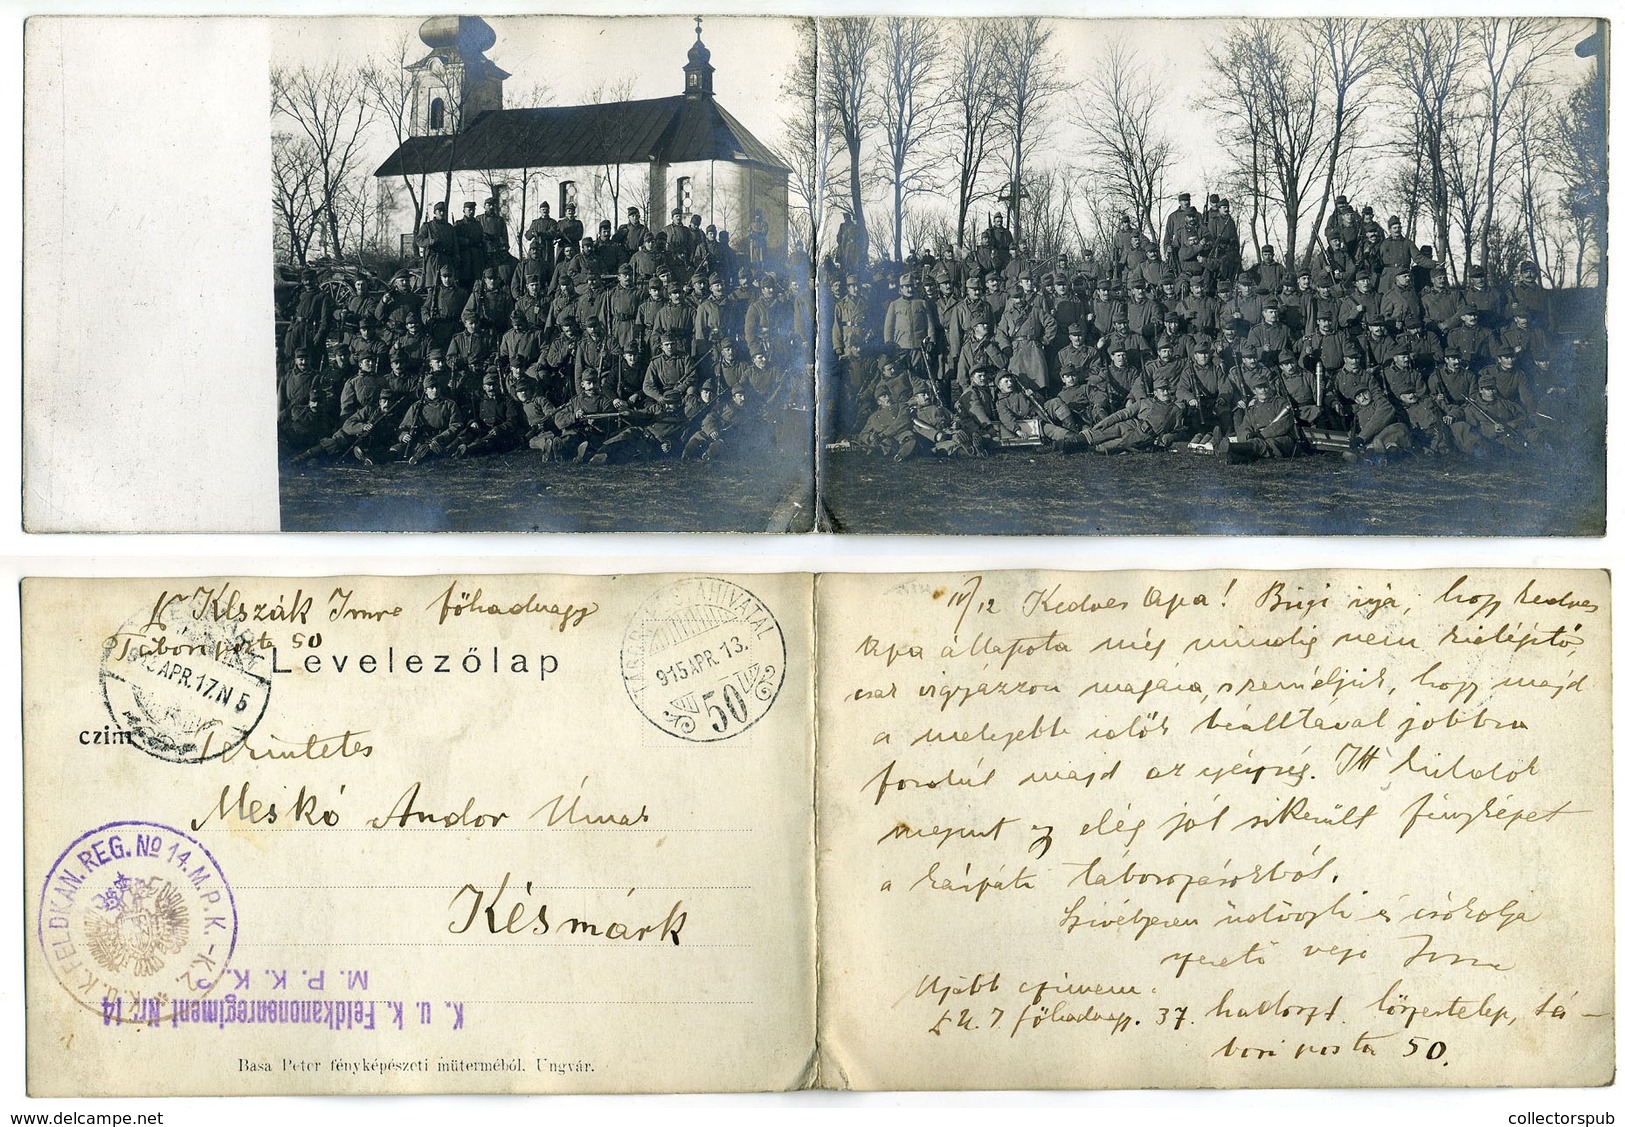 Klszák Imre főhadnagy
Tábori posta 50
Levelezőlap
915 APR. 13.
50
APR. 17. N 5
czim
Tekintetes
Meskó Andor Úrnak
Késmárk
K. u. K. FELDKAN. REG. No 14. M. P. K. - K.
K. u. k. Feldkanonenregiment Nr. 14
M. P. K. K.
Basa Peter fényképészeti műterméből. Ungvár.
IV/12 Kedves Apa! Bügi irja, hogy kedves
Apa állapota még mindig nem kielégitő,
csak vigyázzon magára, reméljük, hogy majd
a melegebb idők beálltával jobbra
fordúl majd az egészség. Itt küldök
megint egy elég jól sikerült fényképet
a kárpáti táborozásokból.
Szivélyesen üdvözli és csókolja
szerető veje Imre
Ujabb czimem:
K. I. főhadnagy. 37. hadoszt. lőszertelep, tá-
bori posta 50.
collectorspub